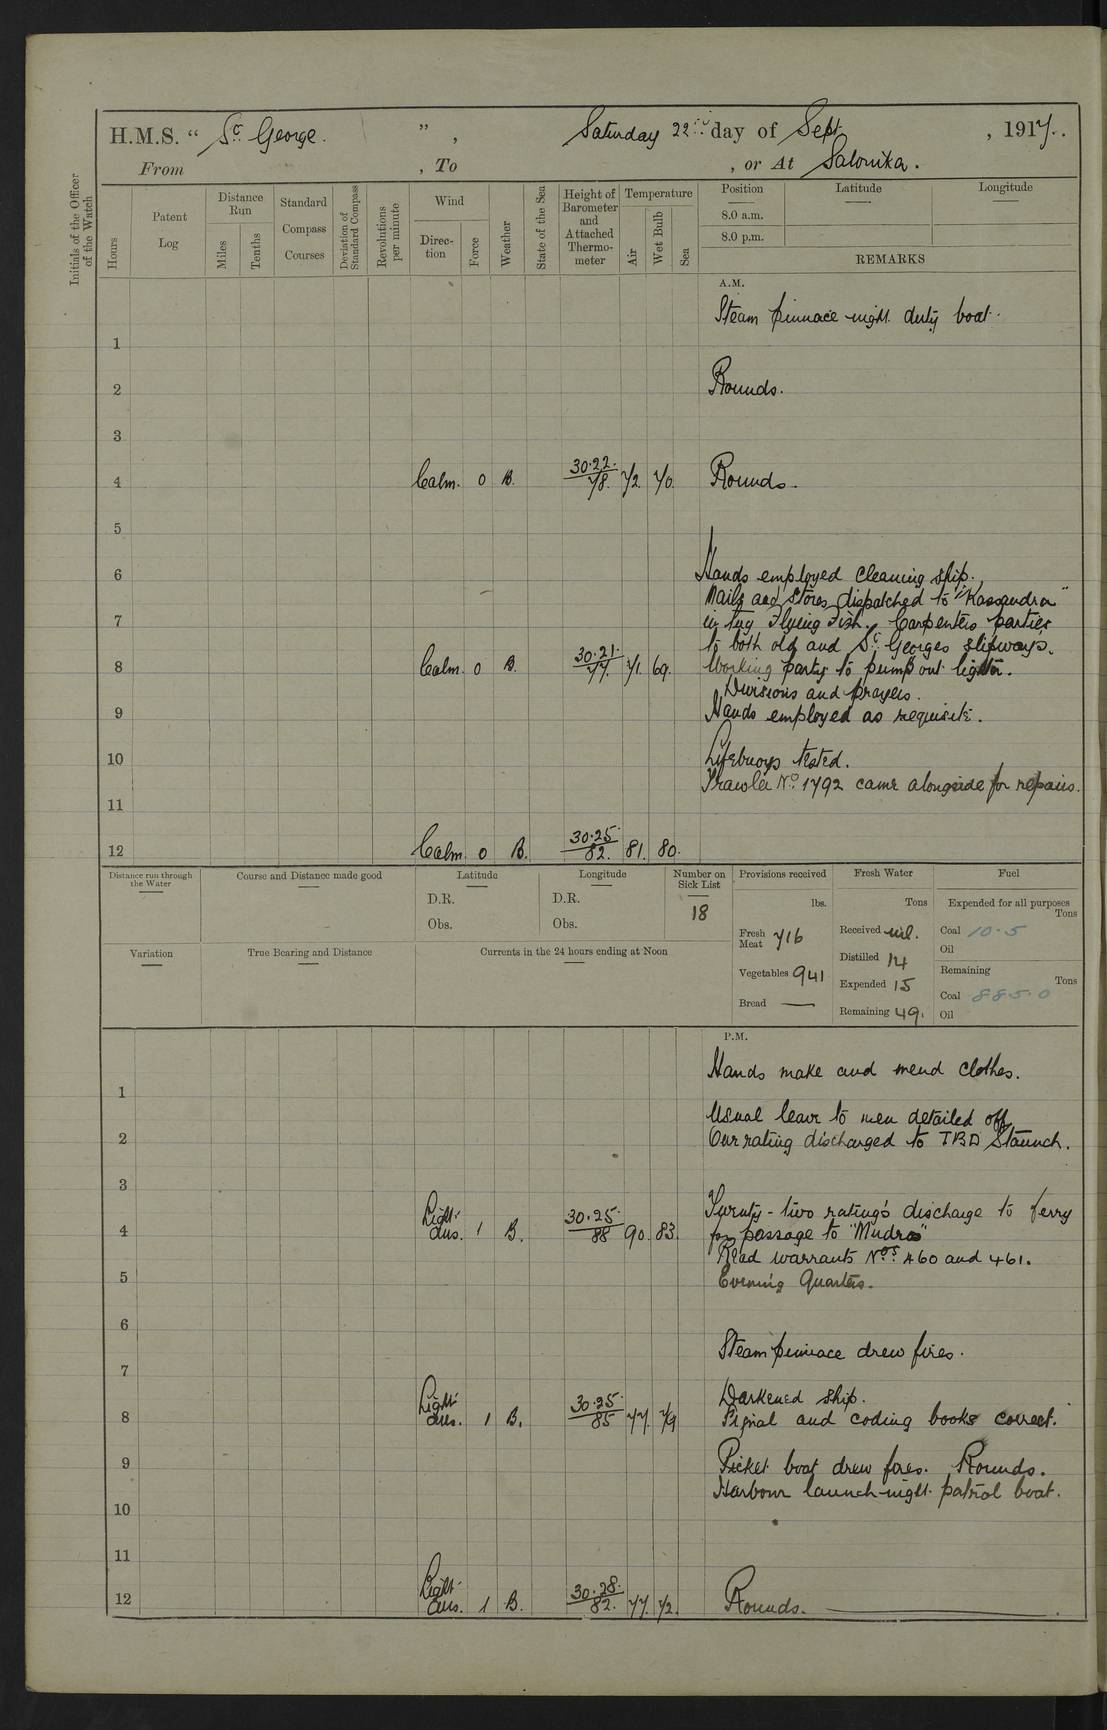 H.M.S. “ St. George. ” , Saturday 22nd day of Sept. , 1917.
From , To , or At Salonika.
Initials of the Officer of the Watch
Hours
Patent Log
Distance Run
Miles
Tenths
Standard Compass Courses
Deviation of Standard Compass
Revolutions per minute
Wind
Direction
Force
Weather
State of the Sea
Height of Barometer and Attached Thermometer
Temperature
Air
Wet Bulb
Sea
Position Latitude Longitude
8.0 a.m.
8.0 p.m.
REMARKS
A.M.
Steam pinnace night duty boat.
1
2 Rounds.
3
4 Calm. 0 B. 30.22. 78. 72. 70. Rounds.
5
6 Hands employed cleaning ship.
Mails and stores dispatched to "Kassandra"
7 in tug Flying Fish. Carpenters parties
to both old and St. Georges slipways.
8 Calm. 0 B. 30.21. 77. 71. 69. Working party to pump out lighter.
Divisions and prayers.
9 Hands employed as requisite.
10 Lifebuoys tested.
Trawler No. 1792 came alongside for repairs.
11
12 Calm. 0 B. 30.25. 82. 81. 80.
Distance run through the Water
Course and Distance made good
Latitude
D.R.
Obs.
Longitude
D.R.
Obs.
Number on Sick List
18
Provisions received
lbs.
Fresh Meat 716
Vegetables 941
Bread —
Fresh Water
Tons
Received nil.
Distilled 14
Expended 15
Remaining 49.
Fuel
Expended for all purposes
Tons
Coal 10.5
Oil
Remaining
Tons
Coal 885.0
Oil
Variation
True Bearing and Distance
Currents in the 24 hours ending at Noon
P.M.
Hands make and mend clothes.
1
Usual leave to men detailed off.
2 One rating discharged to TBD Staunch.
3
Twenty-two ratings discharge to ferry
4 Light airs. 1 B. 30.25. 88 90. 83. for passage to "Mudros"
Read warrants Nos. 460 and 461.
5 Evening Quarters.
6
Steam pinnace drew fires.
7
Darkened ship.
8 Light airs. 1 B. 30.25. 85 77. 79 Signal and coding books correct.
9 Picket boat drew fires. Rounds.
Harbour launch night patrol boat.
10
11
12 Light airs. 1 B. 30.28. 82. 77. 72. Rounds.